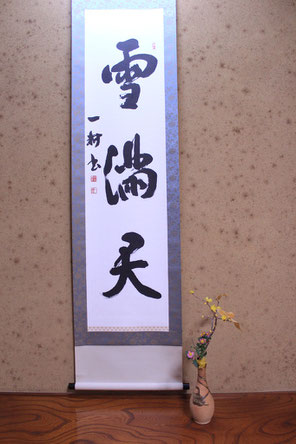 雪満天
一軒書